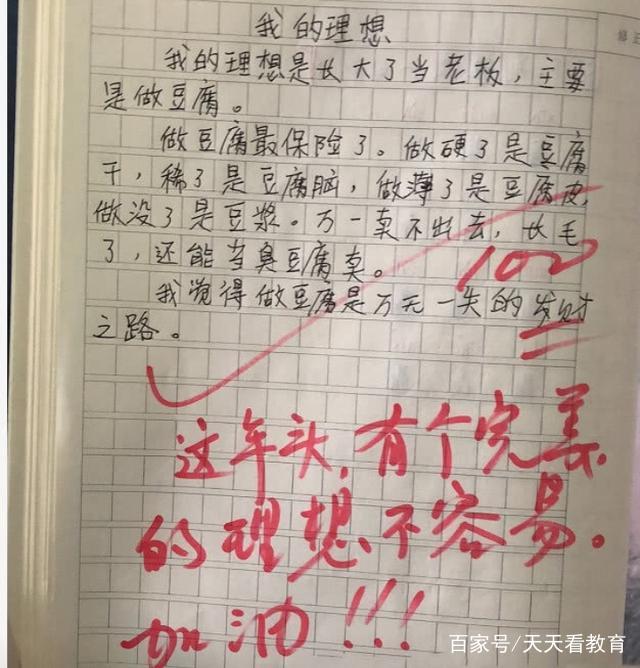 我的理想
我的理想是长大了当老板，主要
是做豆腐。
做豆腐最保险了。做硬了是豆腐
干，稀了是豆腐脑，做薄了是豆腐皮，
做没了是豆浆。万一卖不出去，长毛
了，还能当臭豆腐卖。
我觉得做豆腐是万无一失的发财
之路。
100
这年头，有个完美
的理想不容易。
加油!!!
百家号/天天看教育